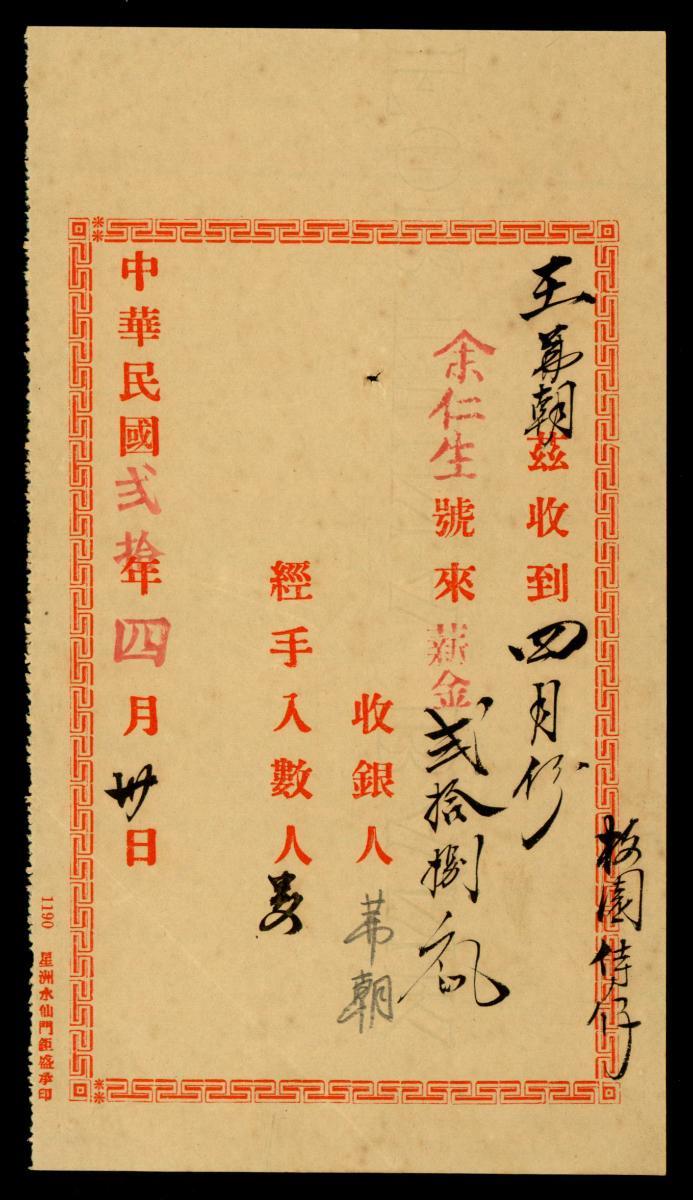 梅園侍仔
王苐朝茲收到四月份
余仁生號來薪金弍拾捌元
收銀人苐朝
經手入數人
中華民國弍拾年四月卅日
1190 星洲水仙門鉅盛承印